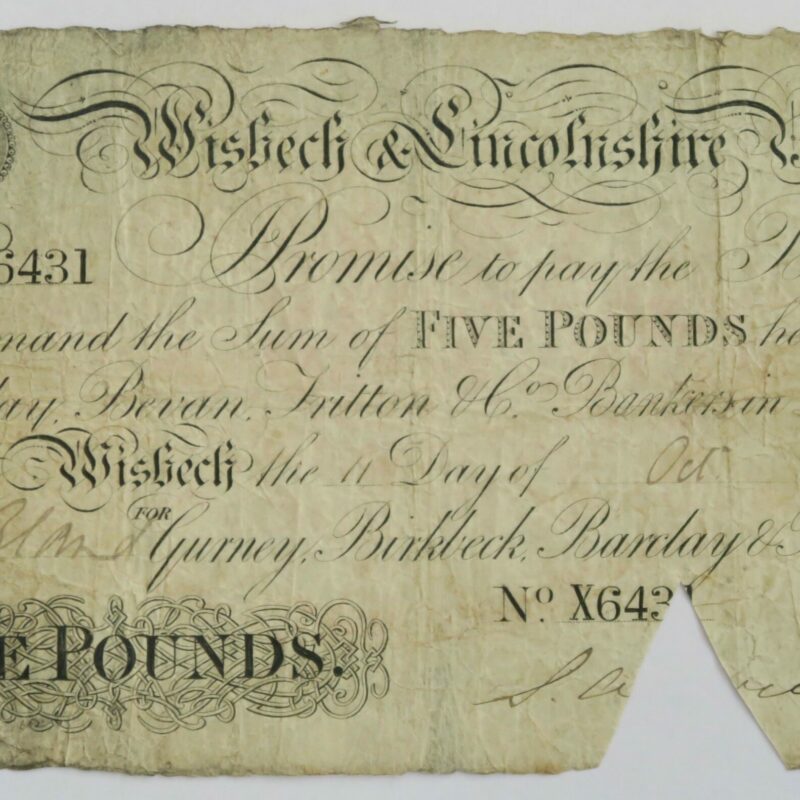 Wisbech & Lincolnshire
6431 Promise to pay the
mand the Sum of FIVE POUNDS
ay, Bevan, Tritton & Co. Bankers in
Wisbech the 11 Day of Oct
FOR Gurney, Birkbeck, Barclay &
No X6431
E POUNDS.